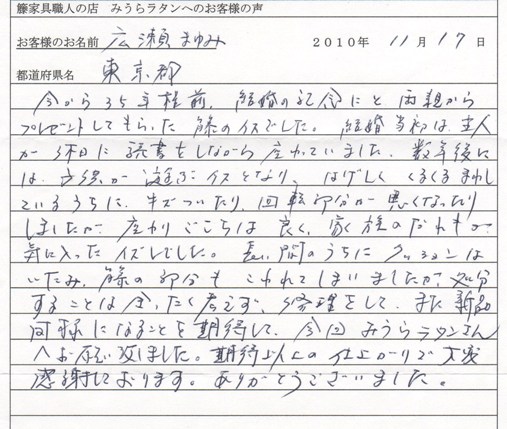 籐家具職人の店 みうらラタンへのお客様の声
お客様のお名前 広瀬まゆみ 2010年 11月17日
都道府県名 東京都
今から35年程前、結婚の記念にと両親から
プレゼントしてもらった籐のイスでした。結婚当初は、主人
が休日に読書をしながら座っていました。数年後に
は、子供が遊ぶイスとなり、はげしくくるくるまわし
ているうちに、キズついたり、回転部分が悪くなったり
しましたが、座りごこちは良く、家族のだれもが
気に入ったイスでした。長い間のうちにクッションは
いたみ、籐の部分もこわれてしまいましたが、処分
することは全く考えず、修理をして、また新品
同様になることを期待して、今回みうらラタンさん
へお願い致ました。期待以上の仕上がりで大変
感謝しております。ありがとうございました。